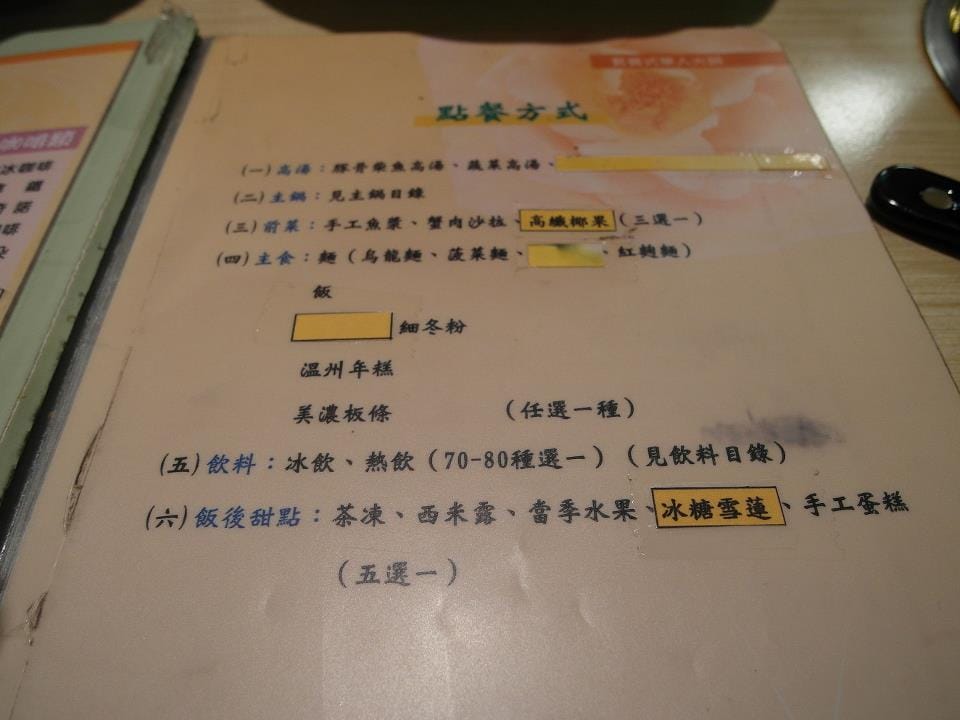 點餐方式
(一)高湯：豚骨柴魚高湯、蔬菜高湯、
(二)主鍋：見主鍋目錄
(三)前菜：手工魚漿、蟹肉沙拉、高纖椰果(三選一)
(四)主食：麵(烏龍麵、菠菜麵、、紅麴麵)
飯
細冬粉
溫州年糕
美濃板條 (任選一種)
(五)飲料：冰飲、熱飲(70-80種選一)(見飲料目錄)
(六)飯後甜點：茶凍、西米露、當季水果、冰糖雪蓮、手工蛋糕
(五選一)